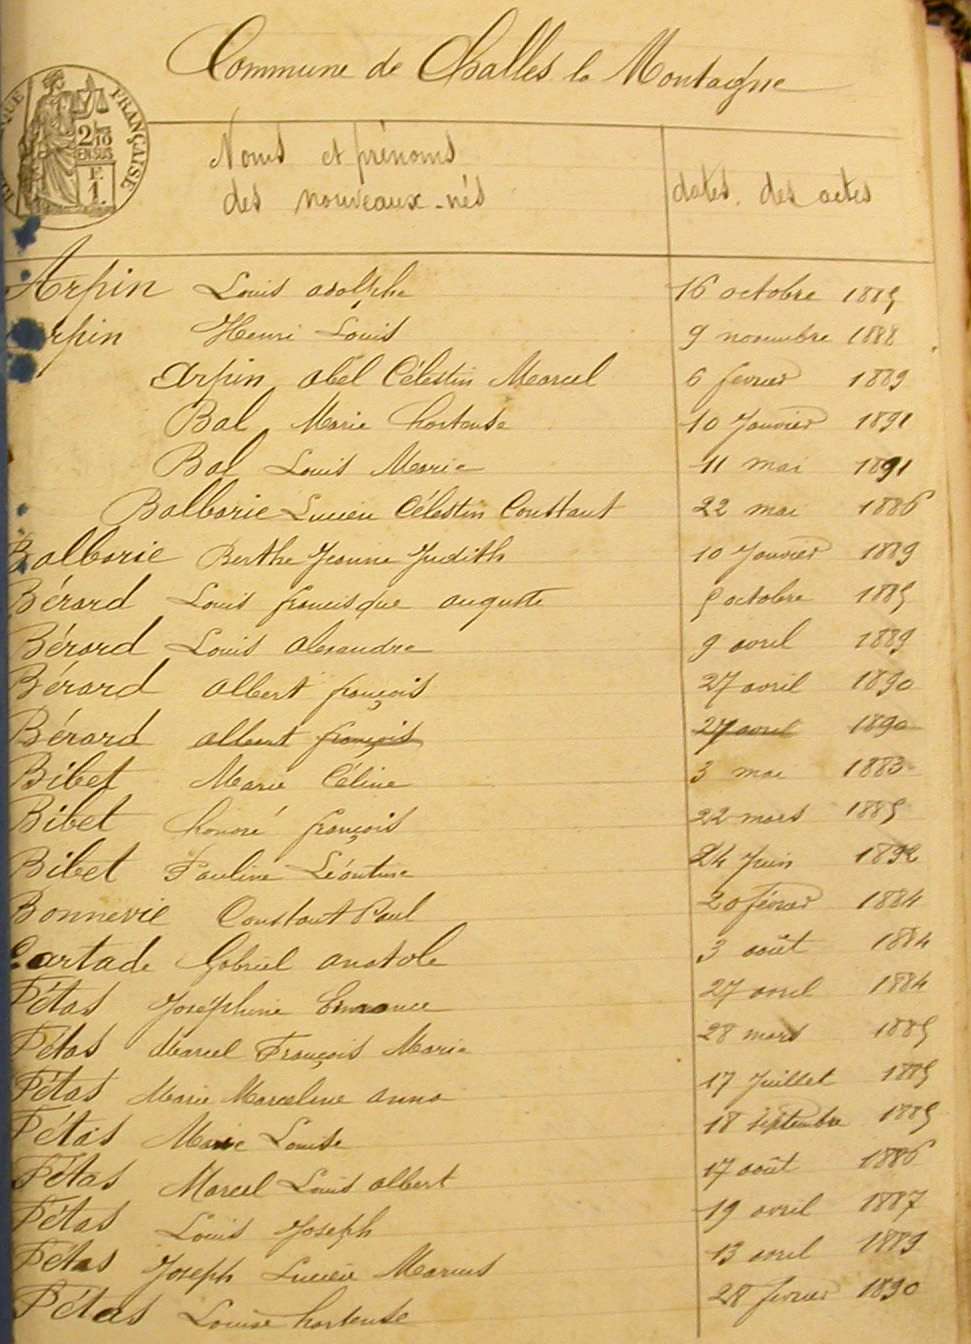 Commune de Challes la Montagne
QUE FRANÇAISE
2/10
EN SUS
F.
1.
Noms et prénoms
des nouveaux-nés
dates des actes
Arpin Louis adolphe 16 octobre 1885
Arpin Henri Louis 9 novembre 1888
Arpin abel Célestin Marcel 6 fevrier 1889
Bal Marie hortense 10 Janvier 1891
Bal Louis Marie 11 mai 1891
Balborie Lucien Célestin Constant 22 mai 1886
Balborie Berthe Jeanne Judith 10 Janvier 1889
Bérard Louis francisque auguste 5 octobre 1885
Bérard Louis alexandre 9 avril 1889
Bérard albert françois 27 avril 1890
Bérard albert françois 27 avril 1890
Bibet Marie Céline 3 mai 1883
Bibet honoré françois 22 mars 1885
Bibet Pauline Léontine 24 Juin 1892
Bonnevie Constant Paul 20 février 1884
Cartade Gabriel anatole 3 août 1884
Fétas Joséphine 27 avril 1884
Fétas Marcel François Marie 28 mars 1885
Fétas Marie Marceline anna 17 Juillet 1885
Fétas Marie Louise 18 septembre 1885
Fétas Marcel Louis albert 17 août 1886
Fétas Louis Joseph 19 avril 1887
Fétas Joseph Lucien Marius 13 avril 1889
Fétas Louise hortense 28 fevrier 1890